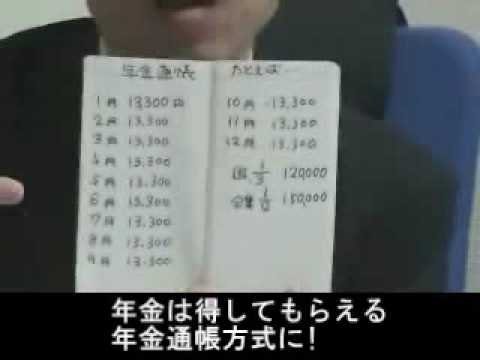 年金通帳
1月 13,300円
2月 13,300
3月 13,300
4月 13,300
5月 13,300
6月 13,300
7月 13,300
8月 13,300
9月 13,300
たとえば…
10月 13,300
11月 13,300
12月 13,300
国 1/3 120,000
150,000
年金は得してもらえる
年金通帳方式に!